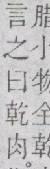 腊小物全乾
言之曰乾肉。